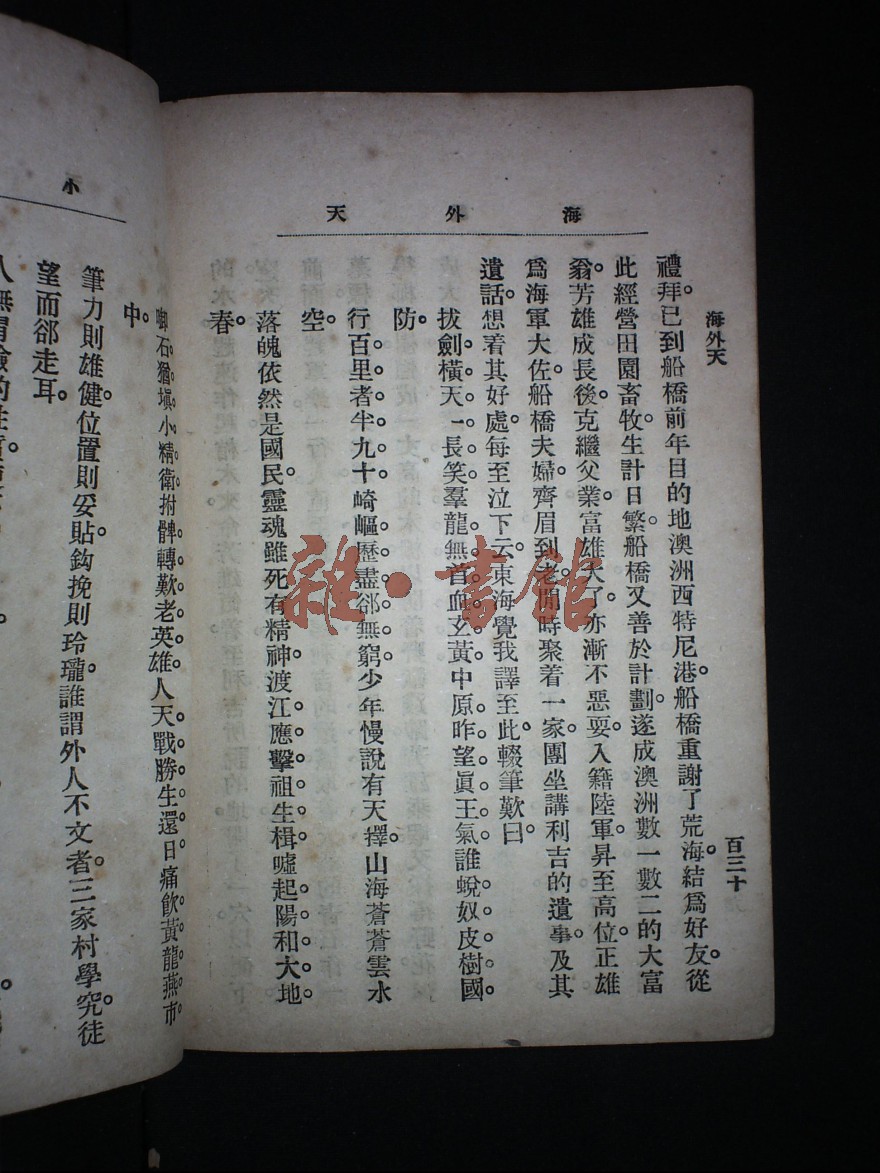 海外天
海外天
百三十
禮拜。已到船橋前年目的地澳洲西特尼港。船橋重謝了荒海。結爲好友。從
此經營田園畜牧。生計日繁。船橋又善於計劃。遂成澳洲數一數二的大富
翁。芳雄成長後。克繼父業。富雄大了。亦漸不惡耍。入籍陸軍。昇至高位。正雄
爲海軍大佐。船橋夫婦。齊眉到老。閒時聚着一家。團坐講利吉的遺事。及其
遺話。想着其好處。每至泣下云。東海覺我譯至此。輟筆歎曰。
拔劍橫天一長笑。羣龍無首血玄黃。中原昨望眞王氣。誰蛻奴皮樹國
防。
行百里者半九十。崎嶇歷盡郤無窮。少年慢說有天擇。山海蒼蒼雲水
空。
落魄依然是國民。靈魂雖死有精神。渡江應擊祖生楫。噓起陽和大地
春。
啣石猶塡小精衛。拊髀轉歎老英雄。人天戰勝生還日。痛飮黃龍燕市
中。
筆力則雄健。位置則妥貼。鈎挽則玲瓏。誰謂外人不文者。三家村學究徒
望而郤走耳。
小
雜·書館